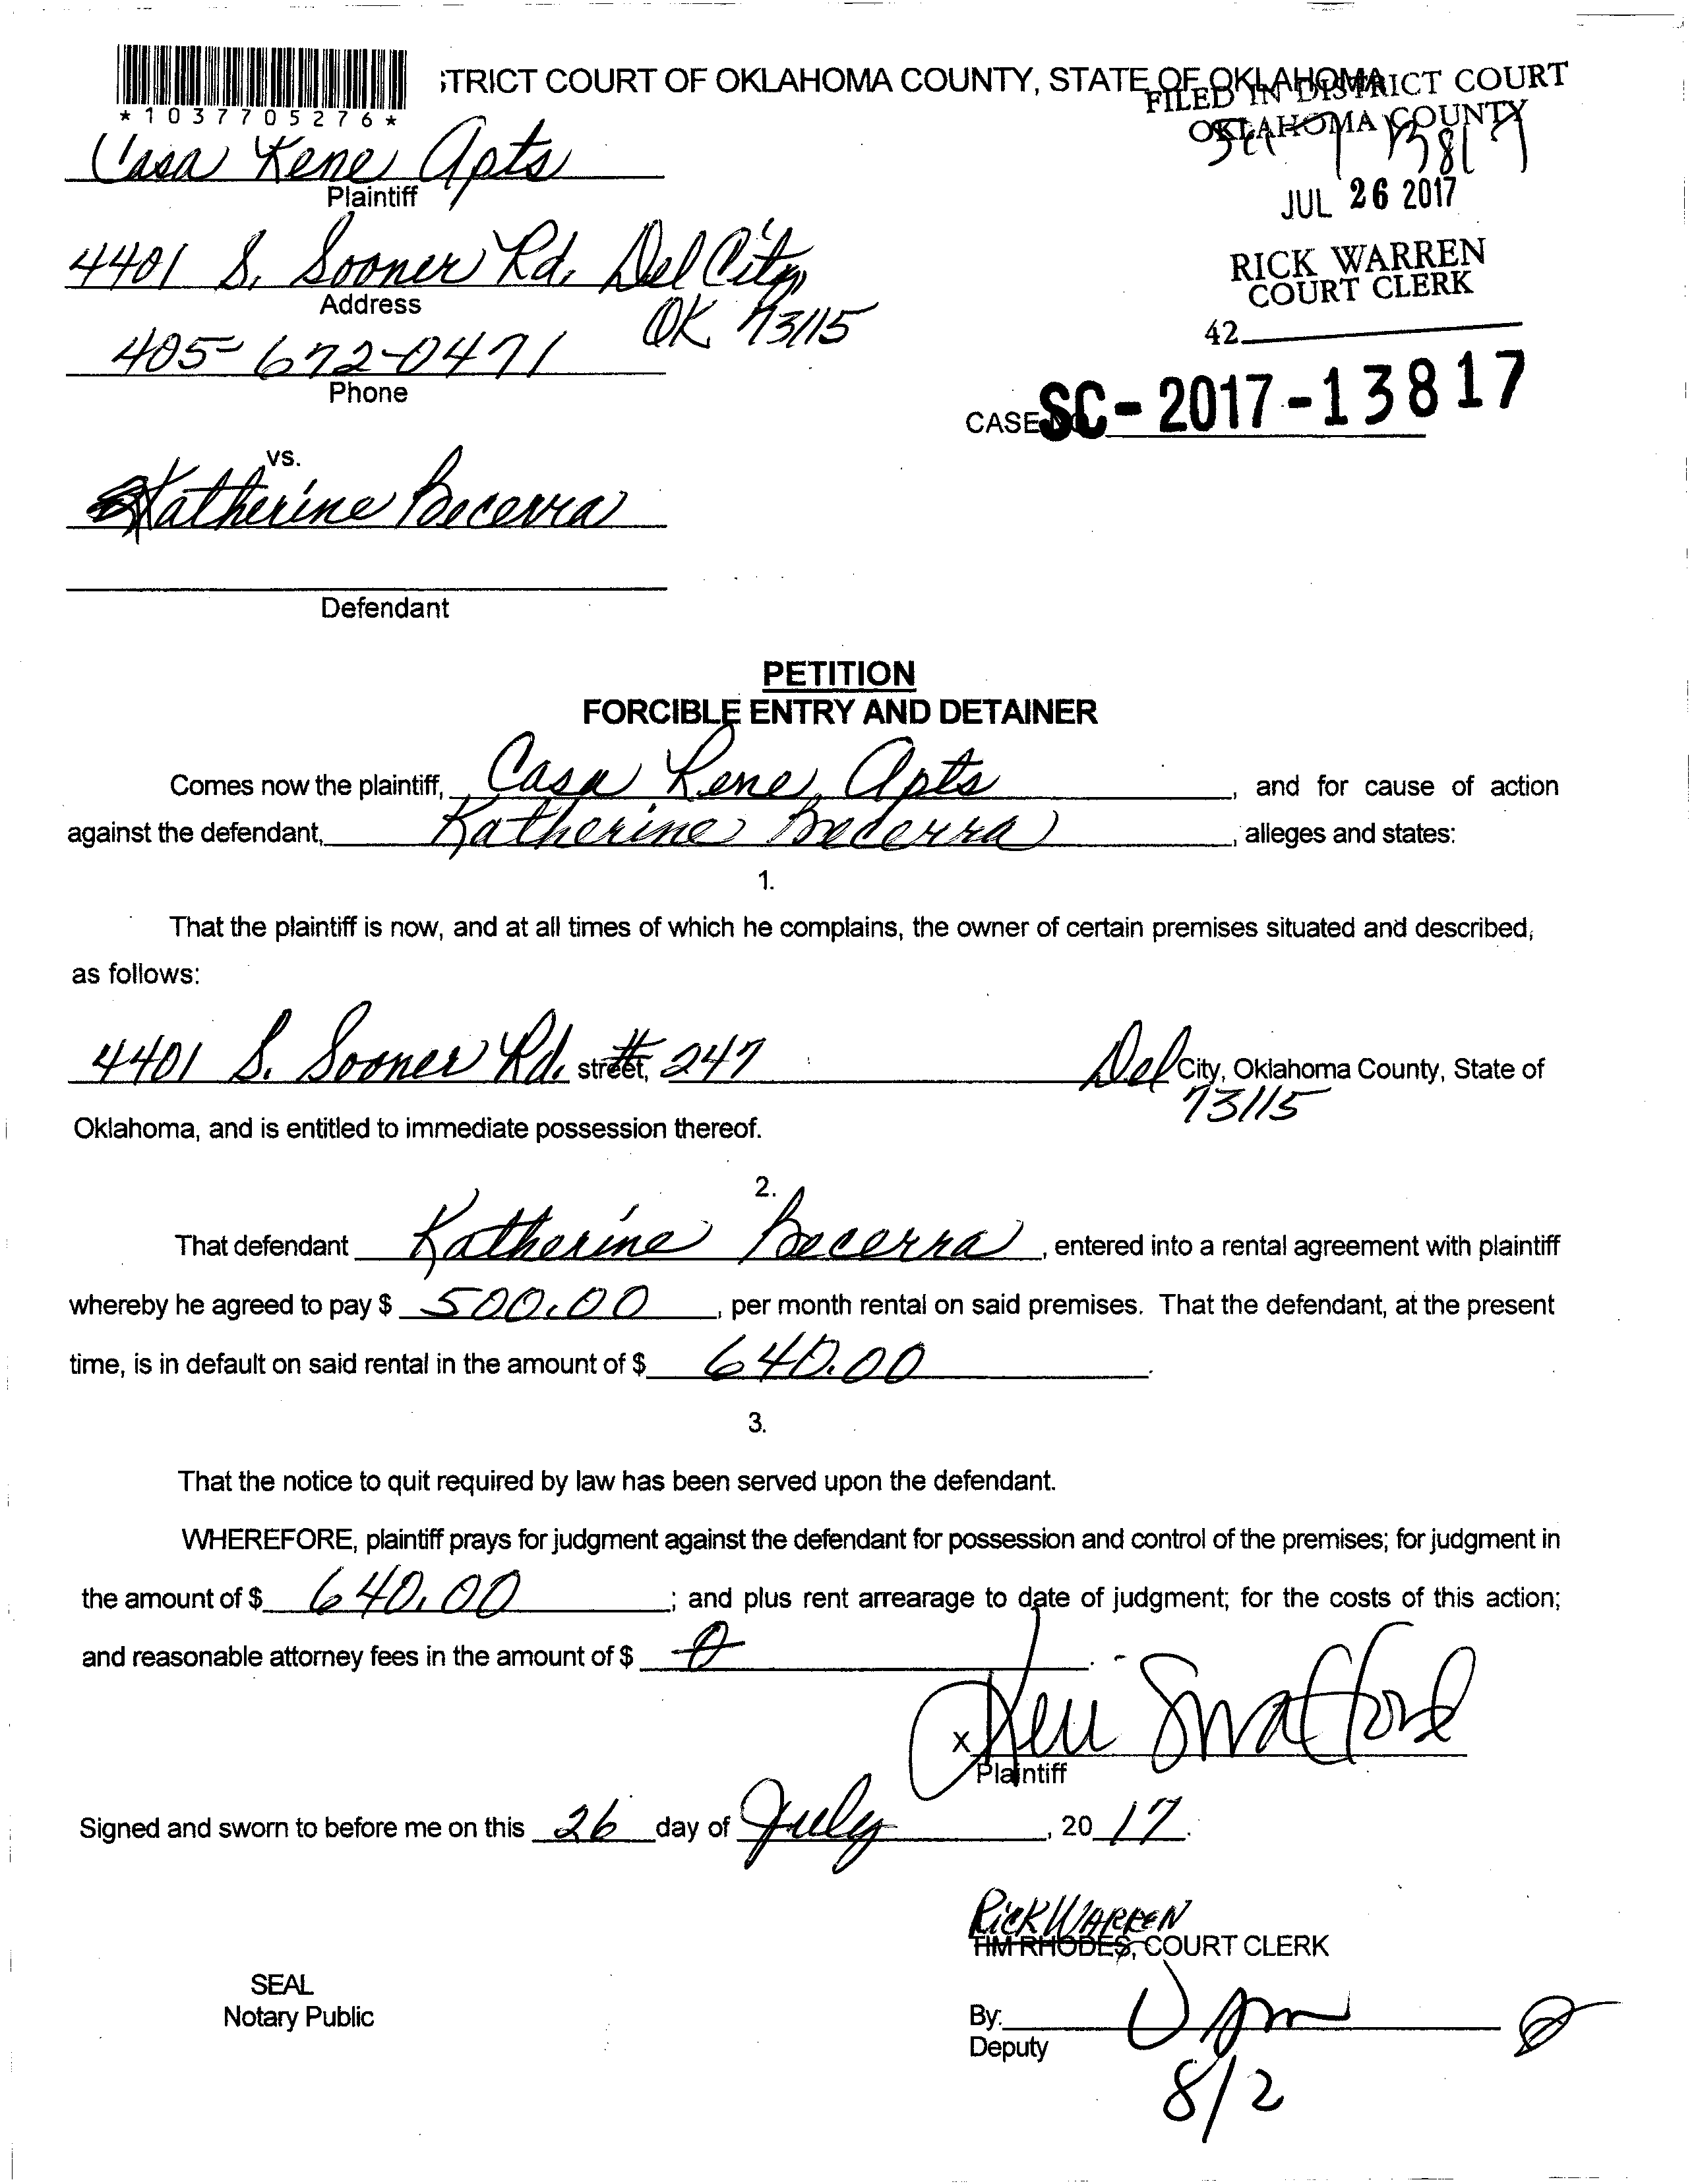 :TRICT COURT OF OKLAHOMA COUNTY, STATE OF OKLAHOMA
FILED IN DISTRICT COURT
OKLAHOMA COUNTY
*1037705276*
Casa Rene Apts
Plaintiff
JUL 26 2017
4401 S. Sooner Rd. Del City
Address
OK 73115
RICK WARREN
COURT CLERK
42
405-672-0471
Phone
CASE SC-2017-13817
vs.
Katherine Becerra
Defendant
PETITION
FORCIBLE ENTRY AND DETAINER
Comes now the plaintiff, Casa Rene Apts, and for cause of action
against the defendant, Katherine Becerra, alleges and states:
1.
That the plaintiff is now, and at all times of which he complains, the owner of certain premises situated and described,
as follows:
4401 S. Sooner Rd. street, # 247 Del City, Oklahoma County, State of
73115
Oklahoma, and is entitled to immediate possession thereof.
2.
That defendant Katherine Becerra, entered into a rental agreement with plaintiff
whereby he agreed to pay $ 500.00, per month rental on said premises. That the defendant, at the present
time, is in default on said rental in the amount of $ 640.00.
3.
That the notice to quit required by law has been served upon the defendant.
WHEREFORE, plaintiff prays for judgment against the defendant for possession and control of the premises; for judgment in
the amount of $ 640.00; and plus rent arrearage to date of judgment; for the costs of this action;
and reasonable attorney fees in the amount of $ 0.
x Swafford
Plaintiff
Signed and sworn to before me on this 26 day of July, 20 17.
Rick WARREN
TIM RHODES, COURT CLERK
SEAL
Notary Public
By:
Deputy
8/2